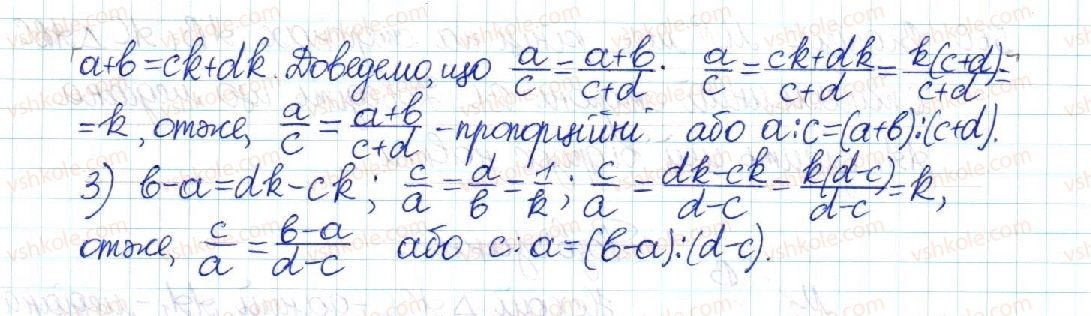 a+b=ck+dk. Доведемо, що a/c = (a+b)/(c+d). a/c = (ck+dk)/(c+d) = k(c+d)/(c+d) =
=k, отже, a/c = (a+b)/(c+d) – пропорційні або a:c=(a+b):(c+d).
3) b-a=dk-ck; c/a = d/b = 1/k; c/a = (dk-ck)/(d-c) = k(d-c)/(d-c) = k,
отже, c/a = (b-a)/(d-c) або c:a=(b-a):(d-c).